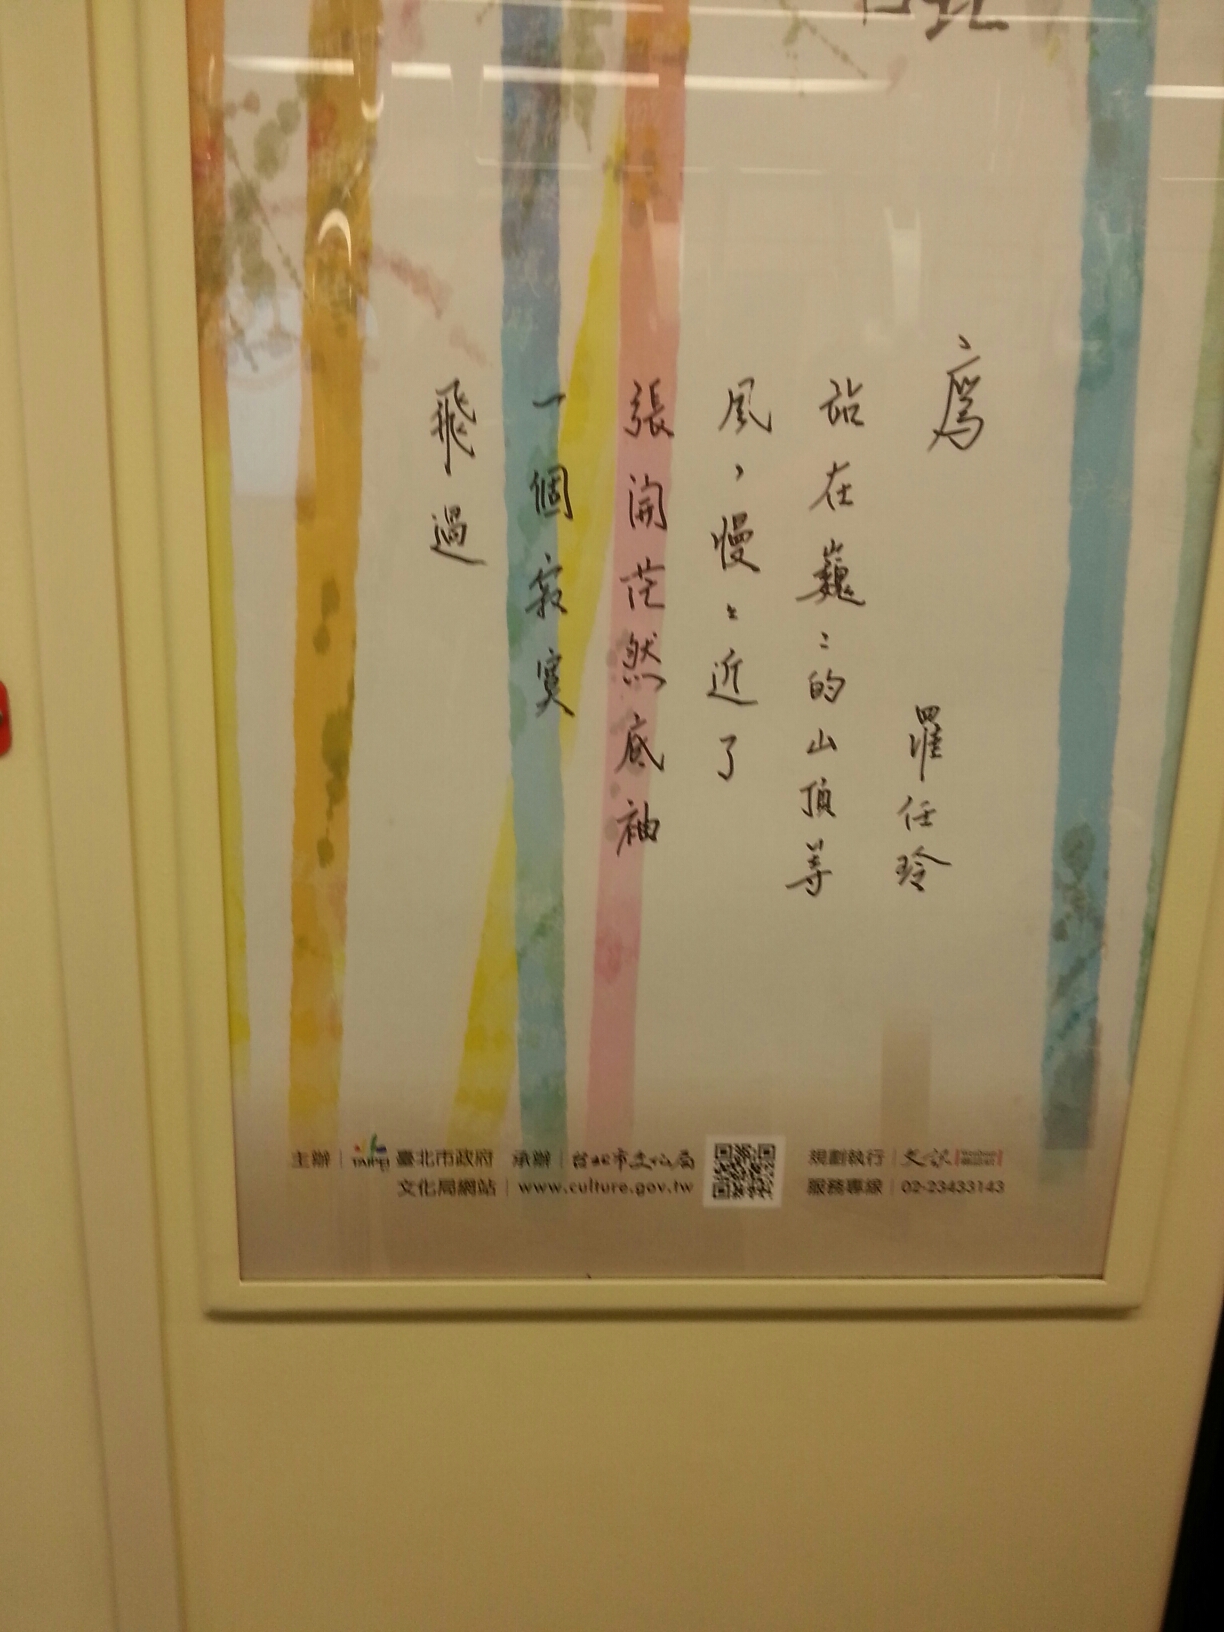 羅任玲
站在巍〻的山頂等
風，慢〻近了
張開茫然底袖
一個寂寞
飛過
主辦 | TAIPEI 臺北市政府 承辦 | 台北市文化局
文化局網站 | www.culture.gov.tw
規劃執行 | 文訊
服務專線 | 02-23433143